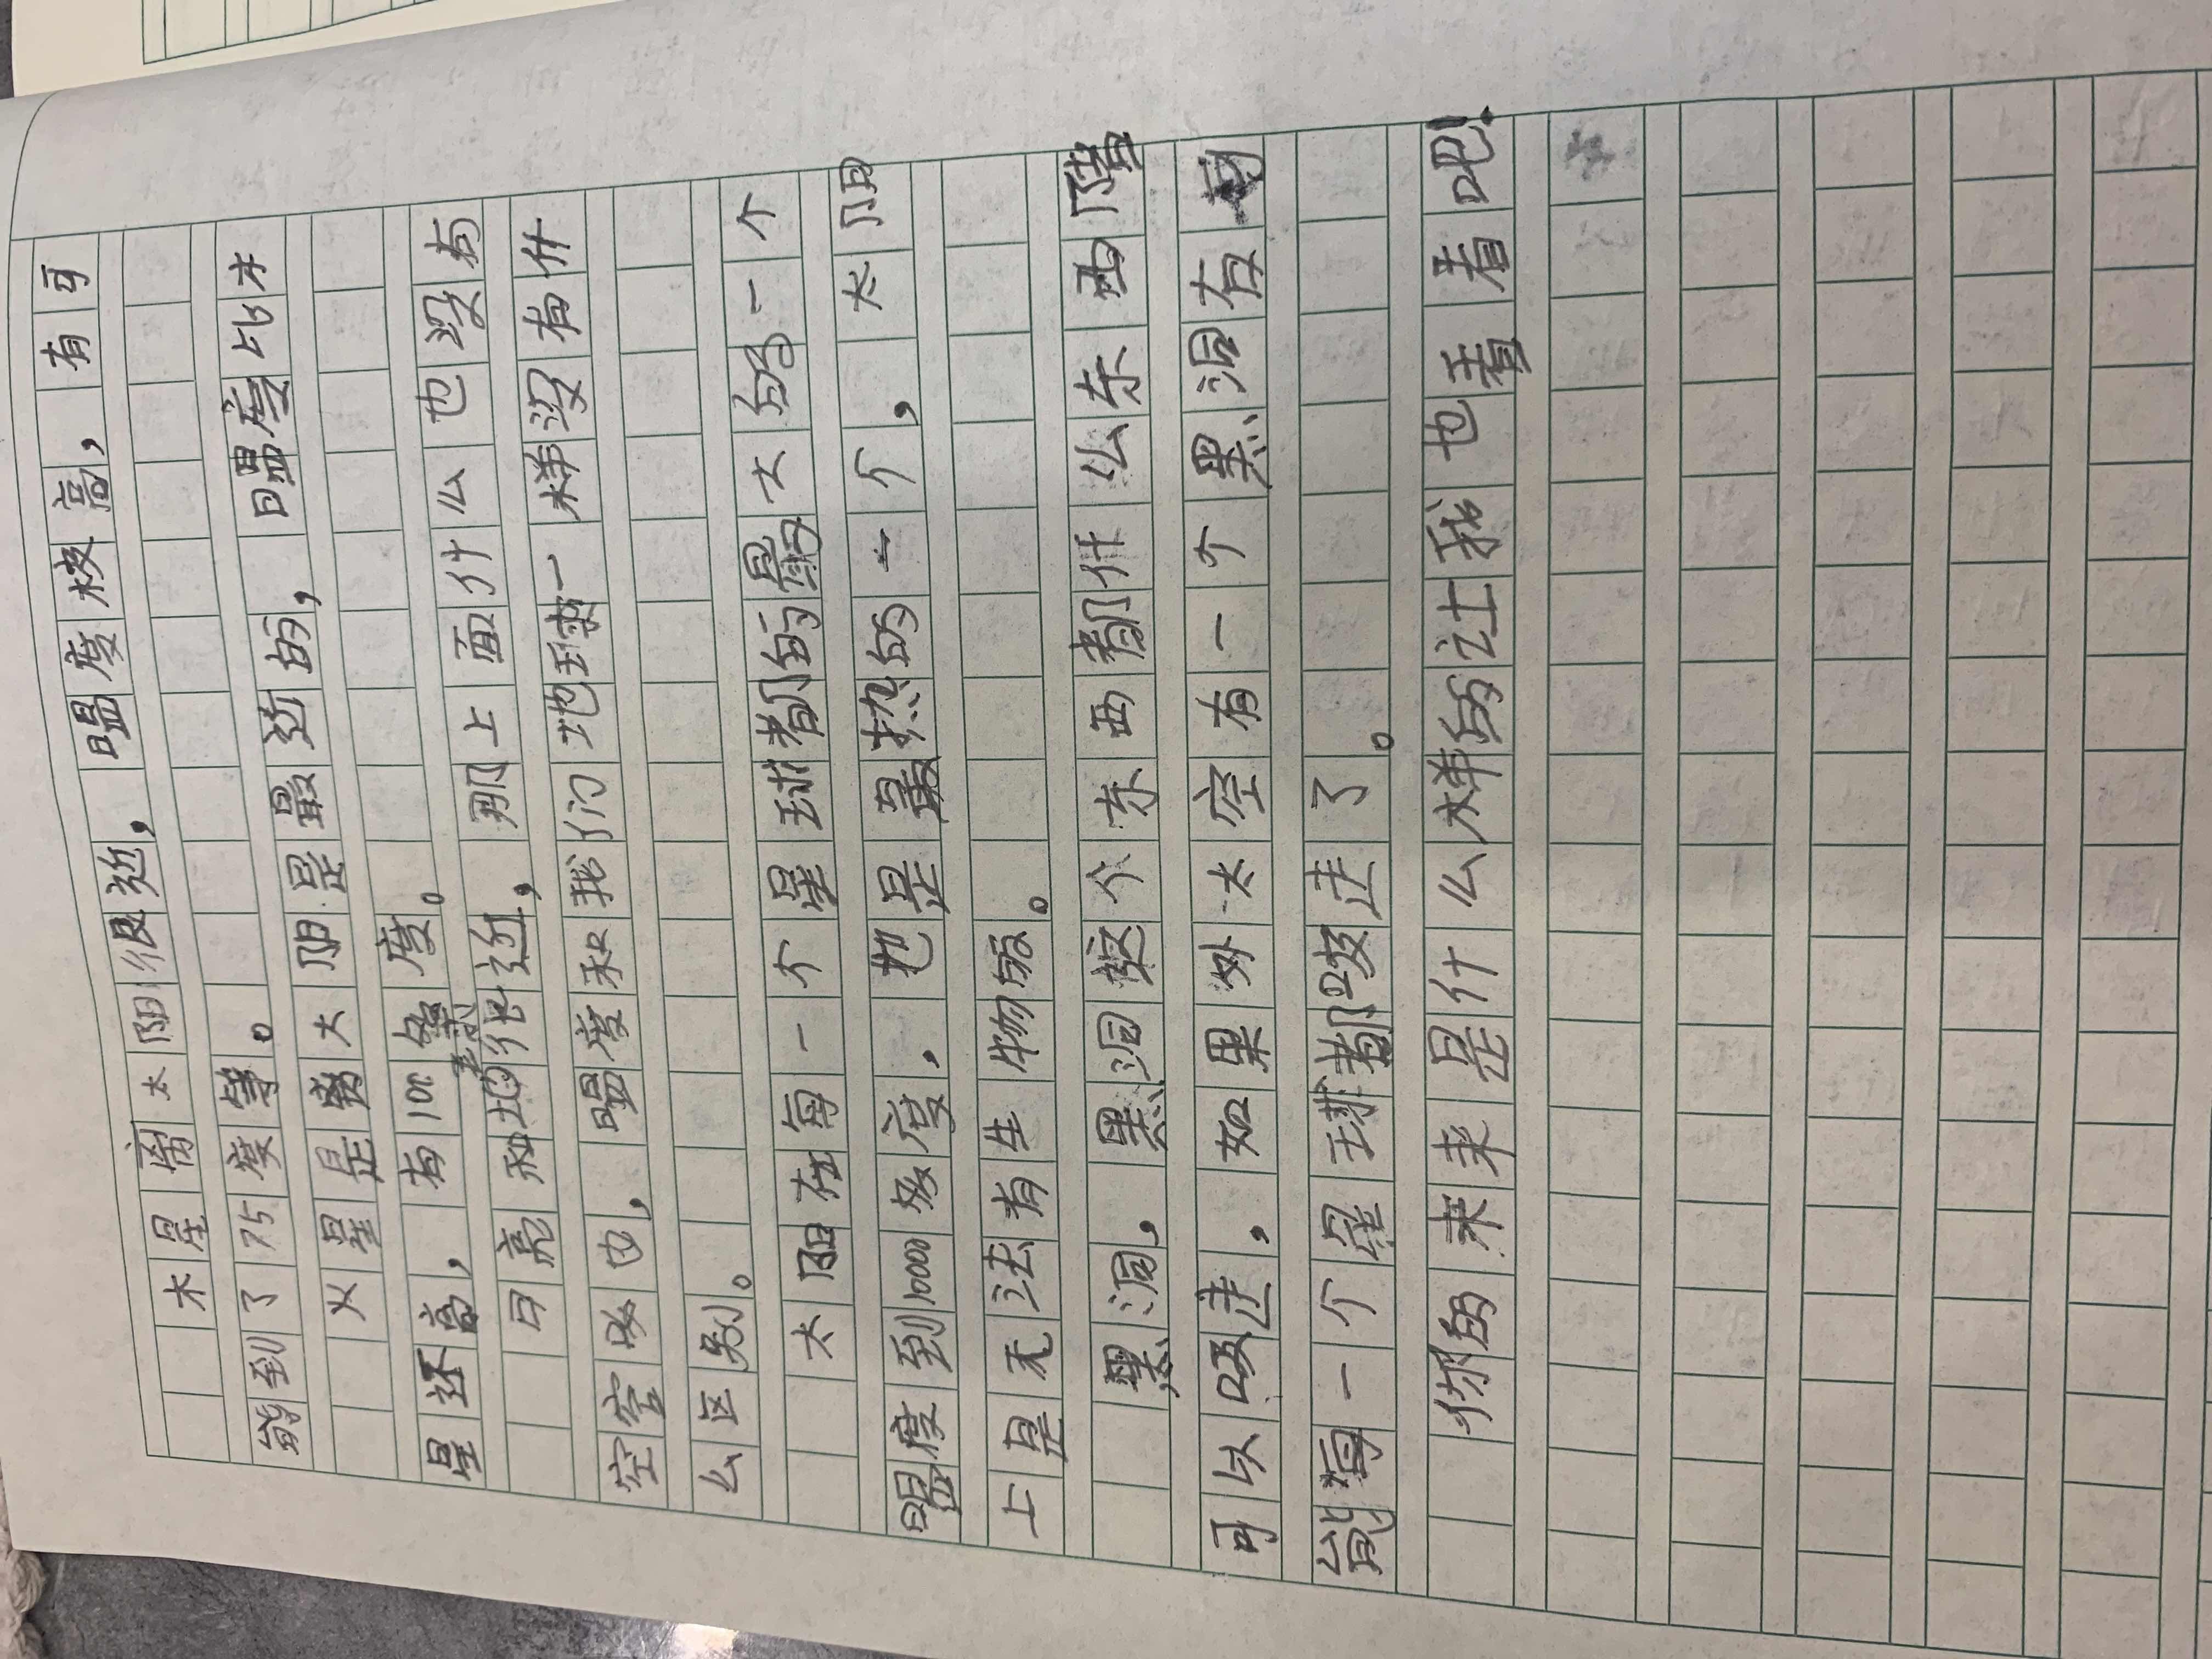 木星离太阳很近，温度校高，有可
能到了75度等。
火星是离大阳是最近的，温度比木
星还高，有100多度。
月亮和地球很近，那上面什么也没有
空空如也，温度和我们地球一样没有什
么区别。
太阳在每一个星球都的最大的一个
温度到1000多度，他是最热的一个，太阳
上是无法有生物的。
黑洞，黑洞这个东西都什么东西
可以吸走，如果外太空有一个黑洞有
能一个星球都吸走了。
你的未来是什么样的让我也看看吧！